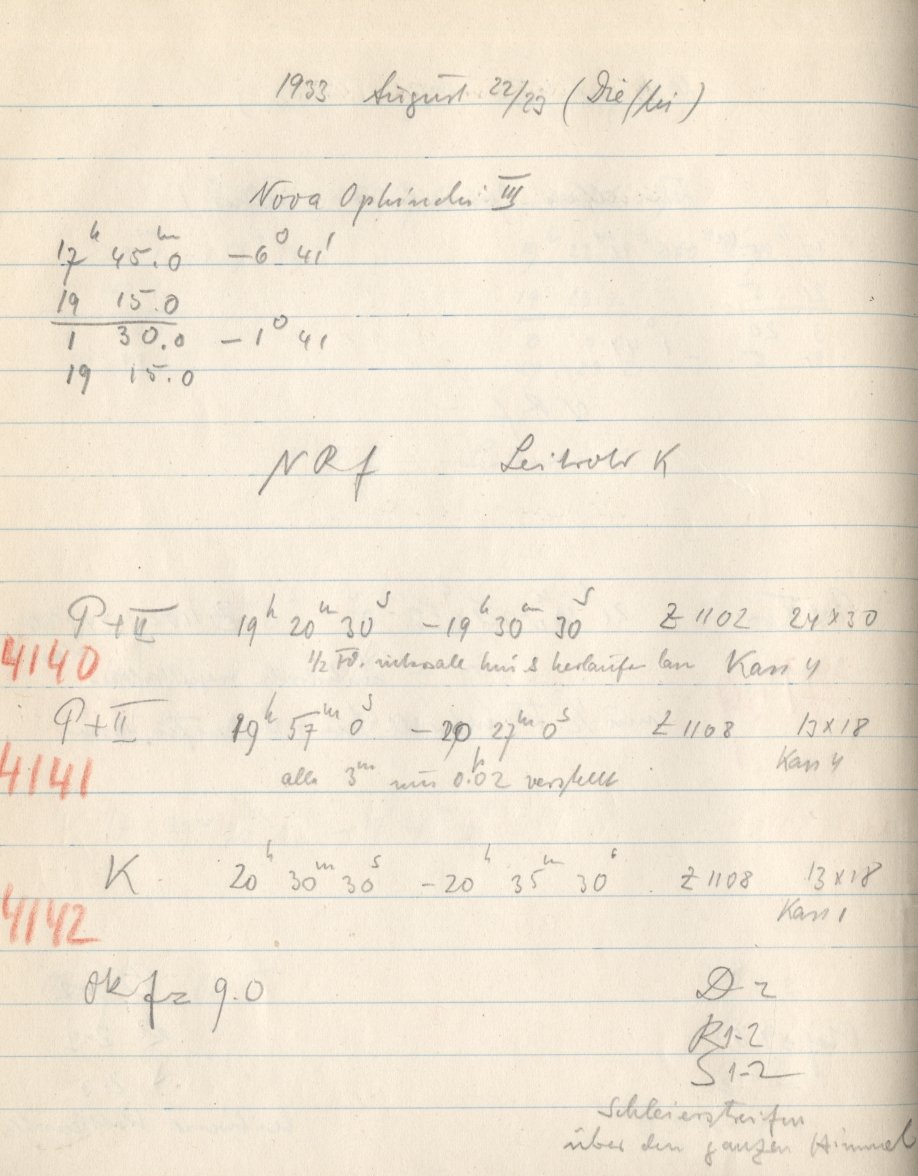 1933 August 22/23 (Die/
Nova Ophiuchi III
17h 45.0m −6° 41'
19 15.0
1 30.0 −1° 41
19 15.0
NRf Leitrohr K
P+II 19h 20m 30s − 19h 30m 30s Z 1102 24×30
4140 1/2 Kass 4
P+II 19h 57m 0s − 20 27m 0s Z 1108 13×18
4141 alle 3m um 0.02 verstellt Kass 4
K 20h 30m 30s − 20h 35m 30s Z 1108 13×18
4142 Kass 1
Okf = 9.0 D 2
R 1-2
S 1-2
Schleierstreifen
über den ganzen Himmel